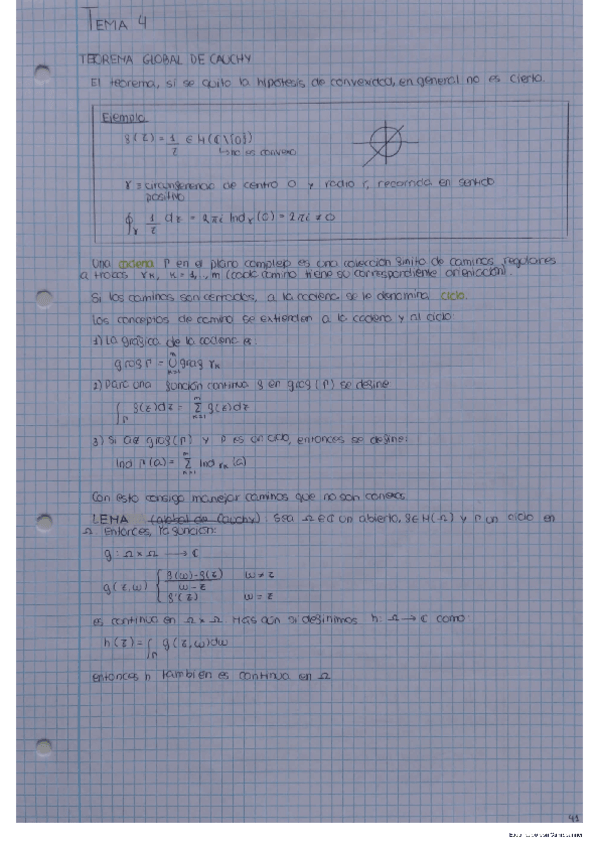 TEMA 4
TEOREMA GLOBAL DE CAUCHY
El teorema, si se quita la hipótesis de convexidad, en general no es cierto.
Ejemplo
f(z) = 1/z ∈ H(C\{0})
↳ no es convexo
γ ≡ circunferencia de centro 0 y radio r, recorrida en sentido
positivo
∮γ 1/z dz = 2πi Indγ(0) = 2πi ≠ 0
Una cadena Γ en el plano complejo es una colección finita de caminos regulares
a trozos γn, n=1,..,m (cada camino tiene su correspondiente orientación).
Si los caminos son cerrados, a la cadena se le denomina ciclo.
Los conceptos de camino se extienden a la cadena y al ciclo:
1) La gráfica de la cadena es:
graf Γ = ∪ graf γn
2) Para una función continua f en graf(Γ) se define
∫Γ f(z)dz = Σ f(z)dz
3) Si a∉ graf(Γ) y Γ es un ciclo, entonces se define:
Ind Γ(a) = Σ Ind γn (a)
Con esto consigo manejar caminos que no son conexos.
LEMA (global de Cauchy) Sea Ω ⊆ C un abierto, f∈H(Ω) y Γ un ciclo en
Ω. Entonces, la función:
g: Ω x Ω → C
g(z,w) { f(w)-f(z) / w-z w≠z
f'(z) w=z
es continua en Ω x Ω. Más aún si definimos h: Ω → C como
h(z) = ∫Γ g(z,w)dw
entonces h también es continua en Ω
41